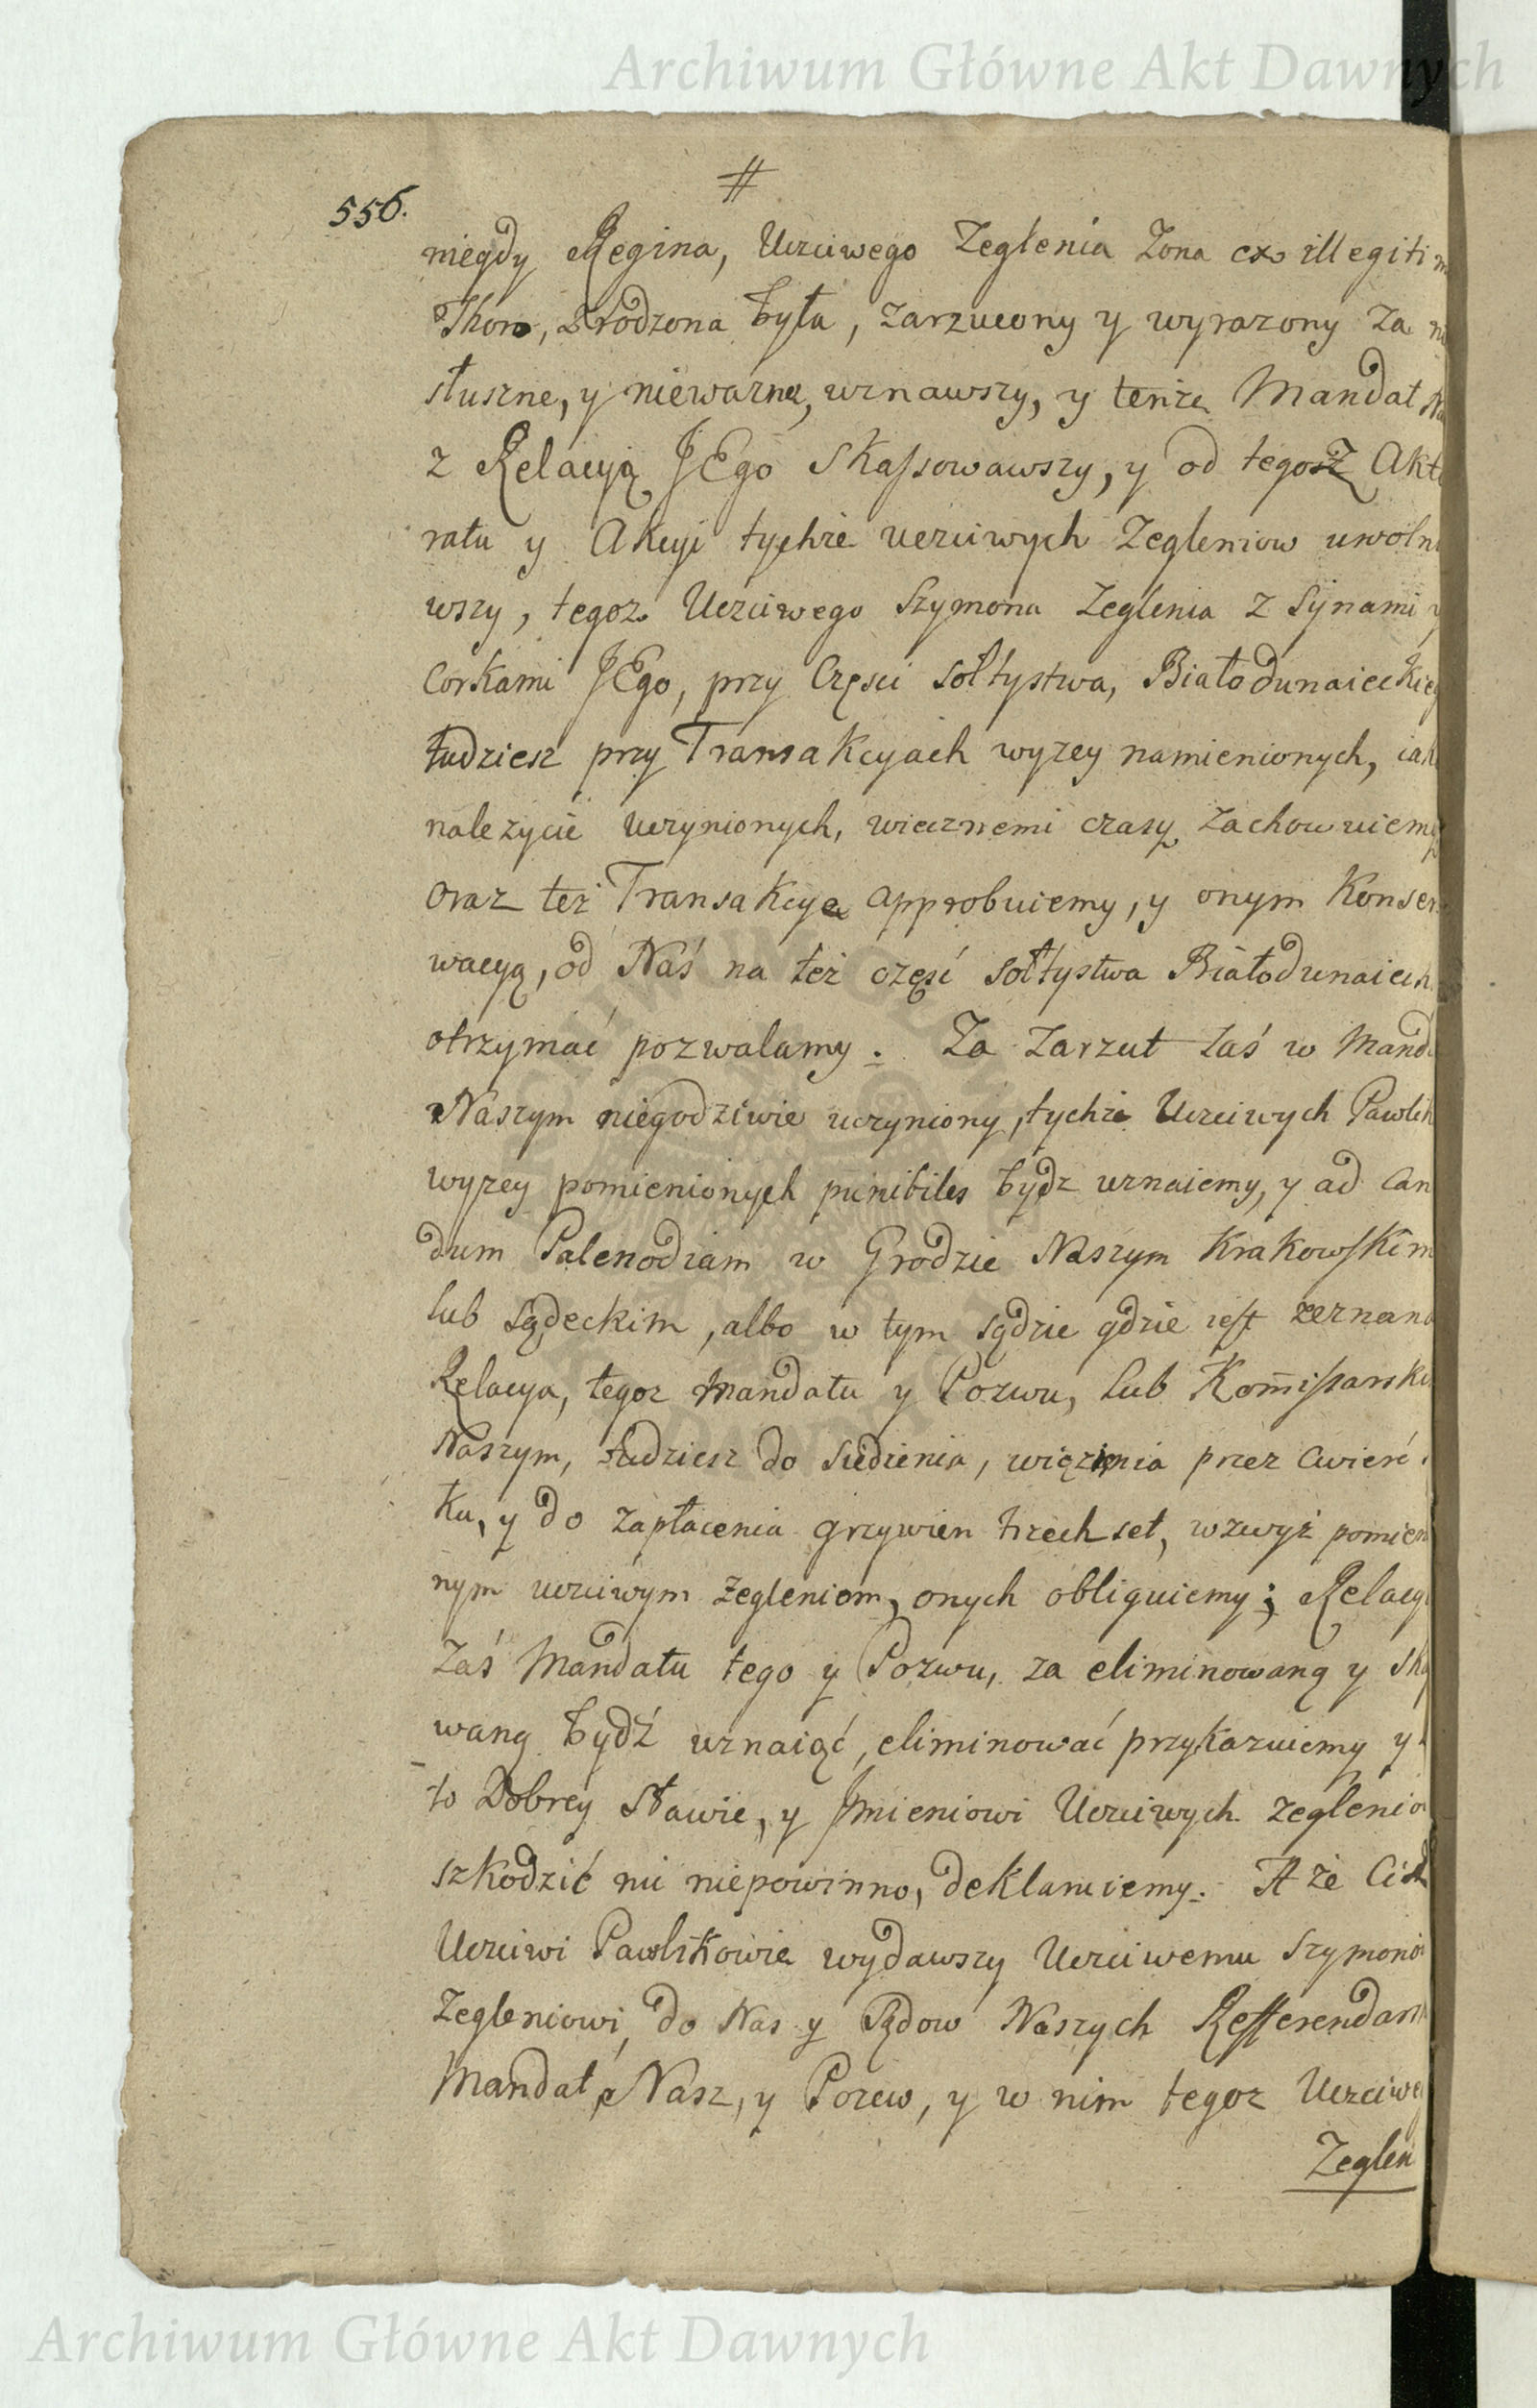 Archiwum Główne Akt Dawnych
#
556.
niegdy Regina, Uczciwego Zeglenia Zona ex illegitim
Thoro, Zrodzona była, zarzucony y wyrazony za ni
słuszne, y niewazne, uznawszy, y tenże Mandat
z Relacyą JEgo skassowawszy, y od tegosz Akto
ratu y Akcyi tychże uczciwych Zegleniow uwolni
wszy, tegoz Uczciwego Szymona Zeglenia z Synami y
Corkami JEgo, przy Części sołtystwa, Białodunaieckieg
tudziesz przy Transakcyach wyzey namienionych, iak
nalezycie uczynionych, wiecznemi czasy zachowuiemy
oraz też Transakcye approbuiemy, y onym Konser
wacyą, od Naś na też część sołtystwa Białodunaieck
otrzymać pozwalamy. Za Zarzut zaś w Manda
Naszym niegodziwie uczyniony, tychże Uczciwych Pawlik
wyzey pomienionych punibiles bydz uznaiemy, y ad Can
dum Palenodiam w Grodzie Naszym Krakowskim
lub sądeckim, albo w tym sądzie gdzie iest zeznana
Relacya, tegoz Mandatu y Pozwu, lub Kom̃issarski
Naszym, tudziesz do siedzenia, więzienia przez cwierć
ku, y do zapłacenia grzywien trzechset, wzwyż pomien
nym uczciwym Zegleniom, onych obliguiemy; Relacyą
zaś Mandatu tego y Pozwu, za eliminowaną y ska
waną bydź uznaiąć, eliminować przykazuiemy y
to Dobrey sławie, y Jmieniowi Uczciwych Zeglenio
szkodzić nic niepowinno, deklaruiemy. A że Ciż
Uczciwi Pawlikowie wydawszy Uczciwemu Szymonio
Zegleniowi, do Nas y Sądow Naszych Refferendars
Mandat Nasz, y Pozew, y w nim tegoz Uczciweg
Zeglen
Archiwum Główne Akt Dawnych